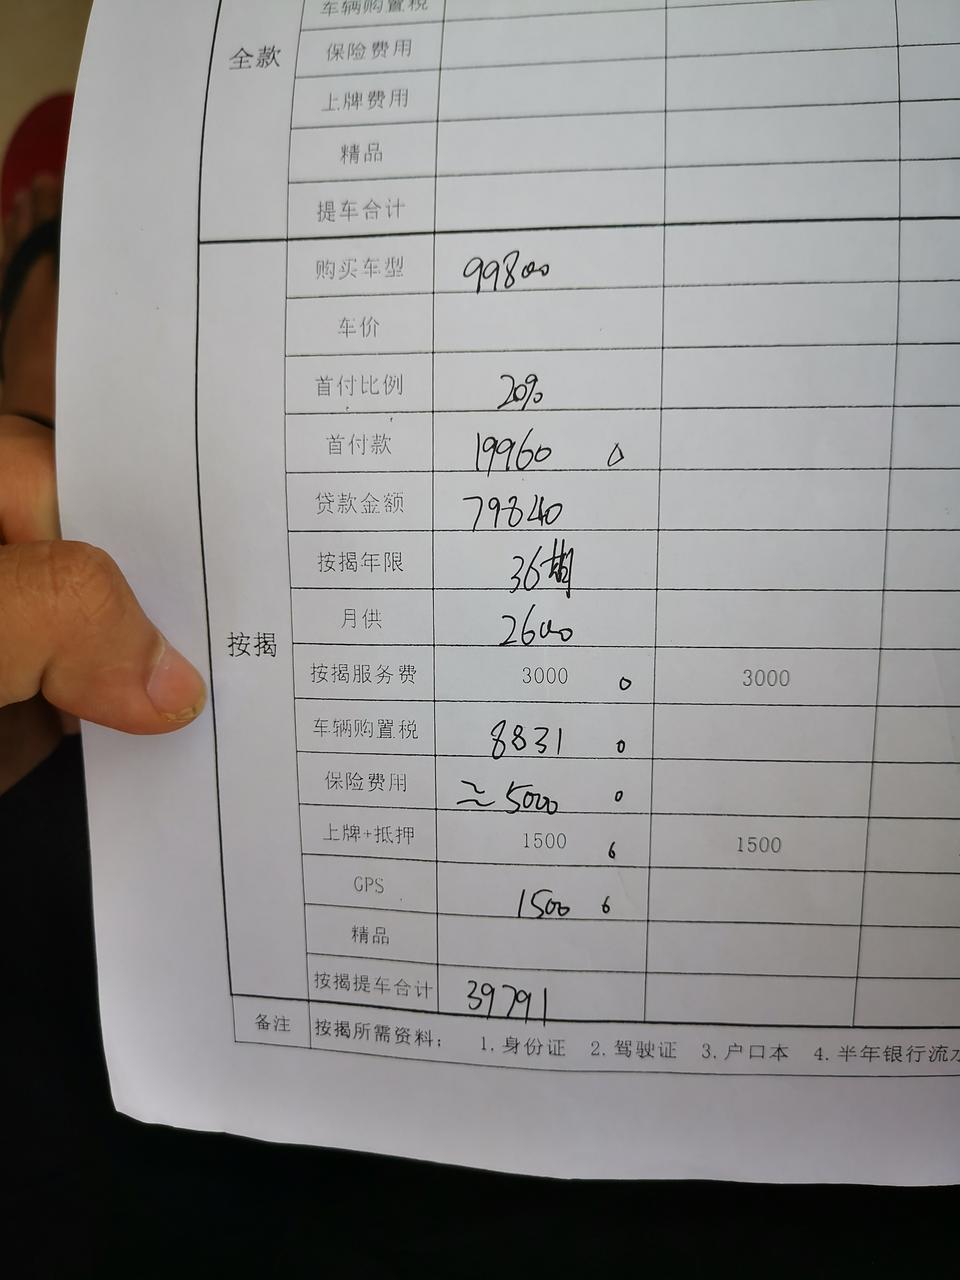 车辆购置税
全款
保险费用
上牌费用
精品
提车合计
购买车型 99800
车价
首付比例 20%
首付款 19960
贷款金额 79840
按揭年限 36期
月供 2600
按揭
按揭服务费 3000 3000
车辆购置税 8831
保险费用 ≈5000
上牌+抵押 1500 1500
GPS 1500
精品
按揭提车合计 39791
备注 按揭所需资料： 1.身份证 2.驾驶证 3.户口本 4.半年银行流水